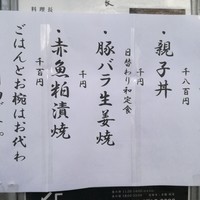 料理長
・親子丼
千八百円
日替わり和定食
・豚バラ生姜焼
千円
・赤魚粕漬焼
千百円
ごはんとお椀はお代わ